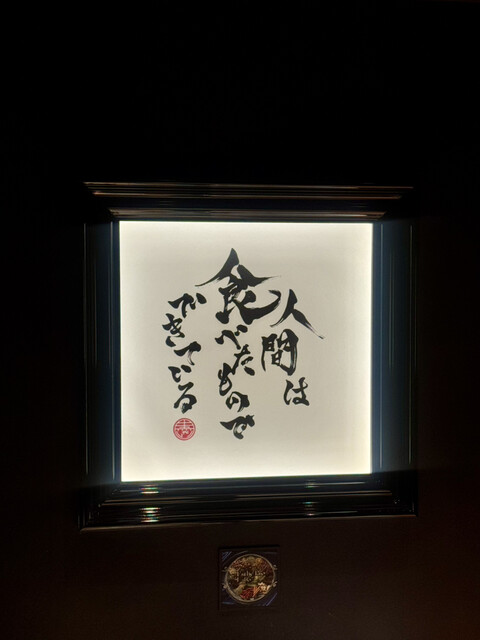 人間は
食べたもので
できている